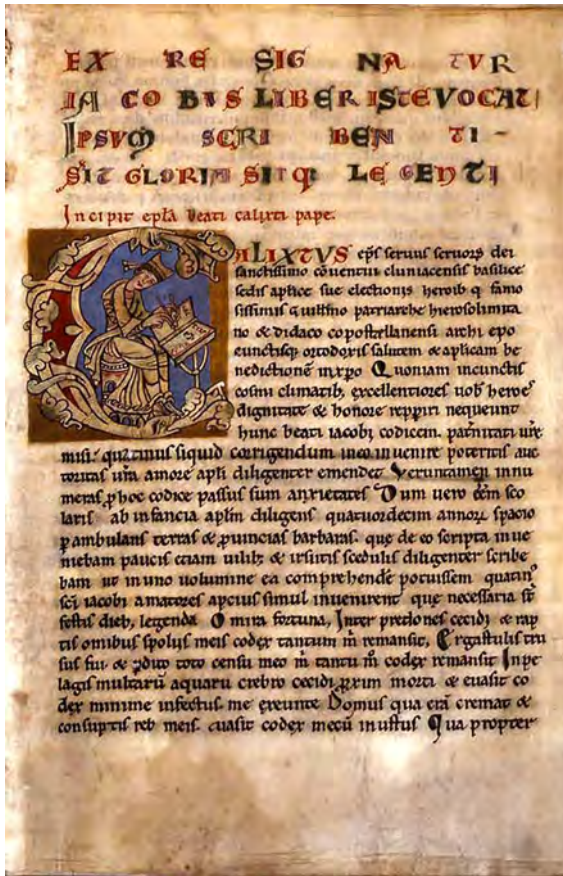 EX RE SIG NA TVR
IA CO BVS LIBER ISTE VOCAT
IPSVM SCRI BEN TI-
SIT GLORIA SITQ; LE GENTI
Incipit epła beati calixti pape.
CALIXTVS ep̄s seruus seruoꝝ dei
sanctissimo cōuentui cluniacensis basilice
sedis aplice sue electionis heroib; q̄ famo
sissimis guillmo patriarche hierosolimita
no & didaco cōpostellanensi archi epo
cunctisq; ortodoxis salutem & aplicam be
nedictionē in xp̄o Quoniam in cunctis
cosmi climatib; excellentiores uob̄ heroes
dignitate & honore repp̄iri nequeunt
hunc beati iacobi codicem. pat̄nitati ur̄e
misi. quatinus siquid corrigendum in eo inuenire poteritis auc
toritas ur̄a amore apli diligenter emendet Veruntamen innu
meras p̱ hoc codice passus sum anxietates Dum uero eēm sco
laris ab infancia aplm diligens quatuordecim annoꝝ spacio
p̱ambulans terras & p̱uincias barbaras. que de eo scripta inue
niebam paucis etiam uilib; & irsutis scedulis diligenter scribe
bam ut in uno uolumine ea comprehendē potuissem quatin᷒
sc̄i iacobi amatores apcius simul inuenirent que necessaria st̄
festis dieb; legenda O mira fortuna, Inter predones cecidi & rap
tis omibus spolijs meis codex tantum m̄ remansit, Ergastulis tru
sus fui. & p̱dito toto censu meo m̄ tantū m̄ codex remansit In pe
lagis multarū aquarū crebro cecidi p̱xim morti & euasit co
dex minime infectus. me exeunte Domus qua erā cremat̄ &
consūptis reb̄ meis. euasit codex mecū inustus Qua propter